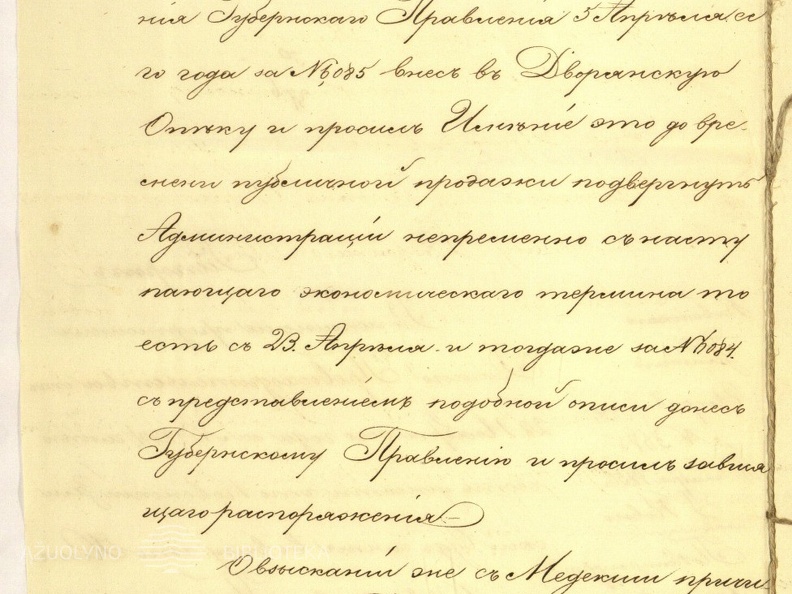 нія Губернскаго Правленія 5 Апрѣля се
го года за № 6085 внесъ въ Дворянскую
Опѣку и просилъ Имѣніе это до вре-
мени публичной продажи подвергнуть
Администраціи непременно съ насту
пающаго экономическаго термина то
есть съ 23. Апрѣля. и тогда же за № 6084.
съ представленіемъ подобной описи донесъ
Губернскому Правленію и просилъ зависа
щаго распоряженія.
О взысканіи же съ Медекши причи-
AZUOLYNO BIBLIOTEKA